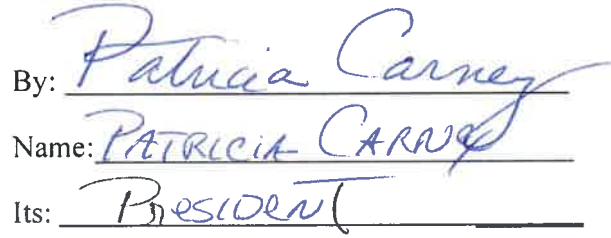 By: Patricia Carney
Name: PATRICIA CARNEY
Its: PRESIDENT